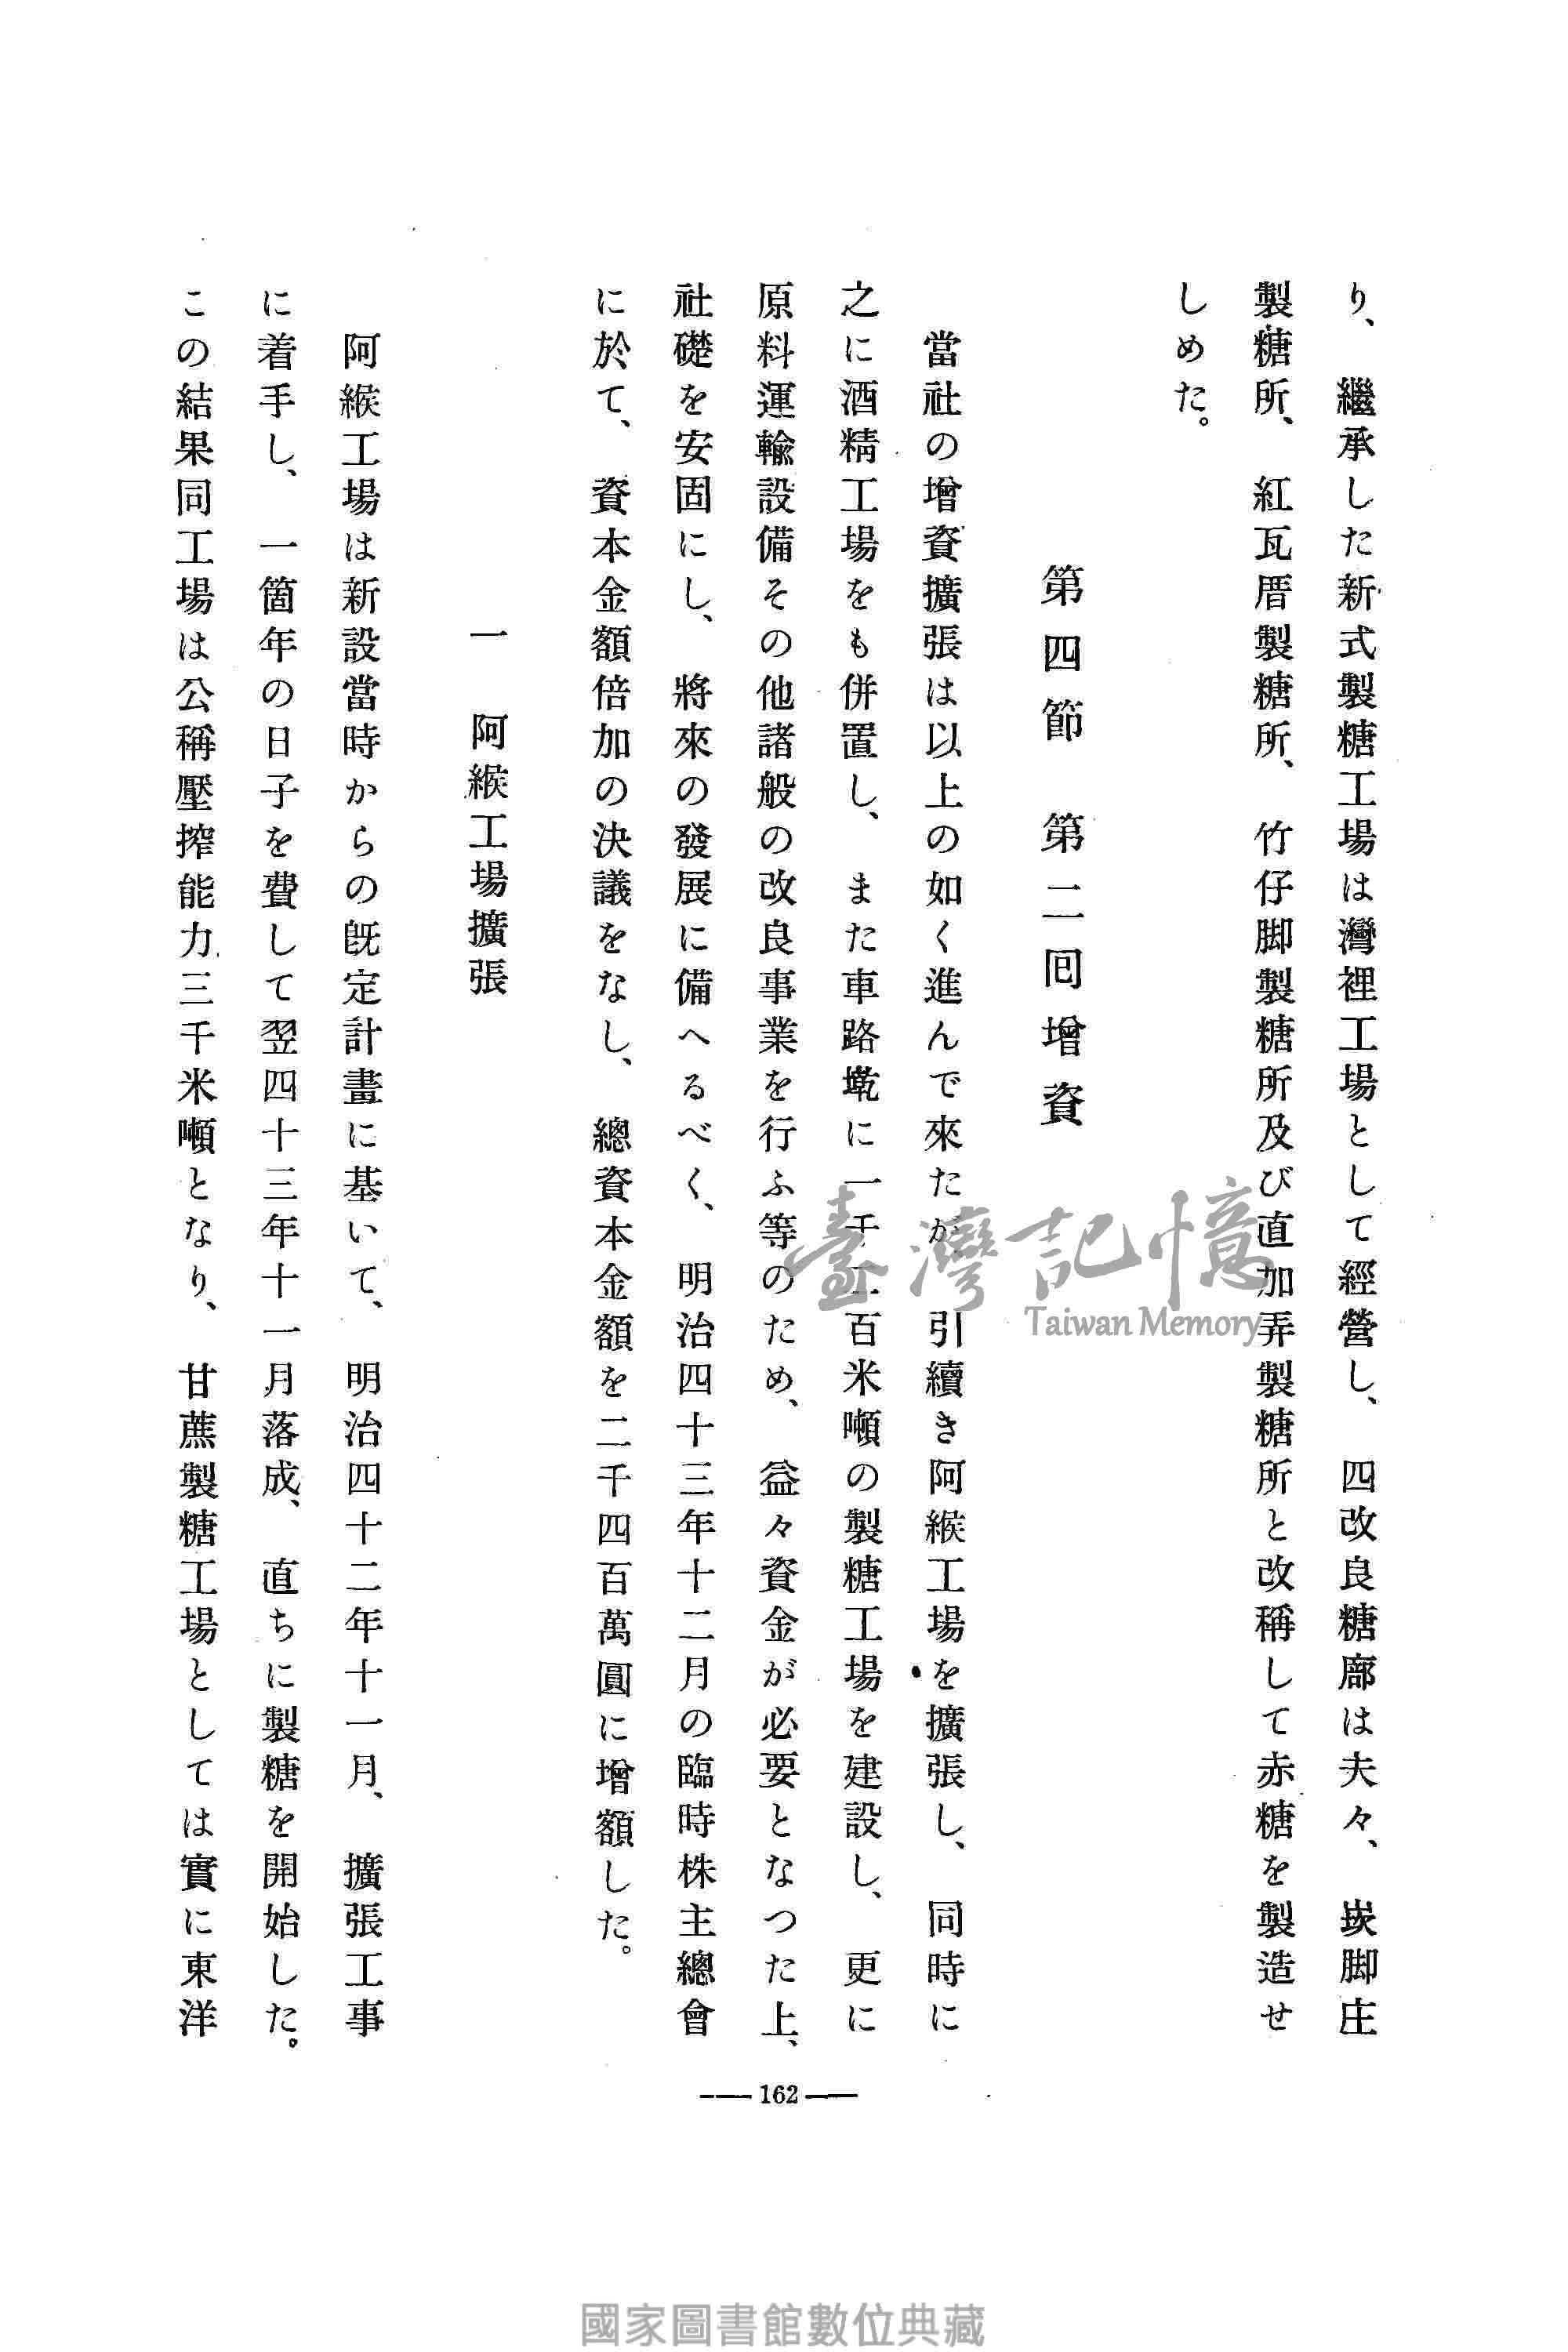 り、繼承した新式製糖工場は灣裡工場として經營し、四改良糖廍は夫々、崁脚庄
製糖所、紅瓦厝製糖所、竹仔脚製糖所及び直加弄製糖所と改稱して赤糖を製造せ
しめた。
第四節　第二回增資
當社の增資擴張は以上の如く進んで來たが、引續き阿緱工場を擴張し、同時に
之に酒精工場をも併置し、また車路墘に一千二百米噸の製糖工場を建設し、更に
原料運輸設備その他諸般の改良事業を行ふ等のため、益々資金が必要となつた上、
社礎を安固にし、將來の發展に備へるべく、明治四十三年十二月の臨時株主總會
に於て、資本金額倍加の決議をなし、總資本金額を二千四百萬圓に增額した。
一　阿緱工場擴張
阿緱工場は新設當時からの既定計畫に基いて、明治四十二年十一月、擴張工事
に着手し、一箇年の日子を費して翌四十三年十一月落成、直ちに製糖を開始した。
この結果同工場は公稱壓搾能力三千米噸となり、甘蔗製糖工場としては實に東洋
162
臺灣記憶
Taiwan Memory
國家圖書館數位典藏